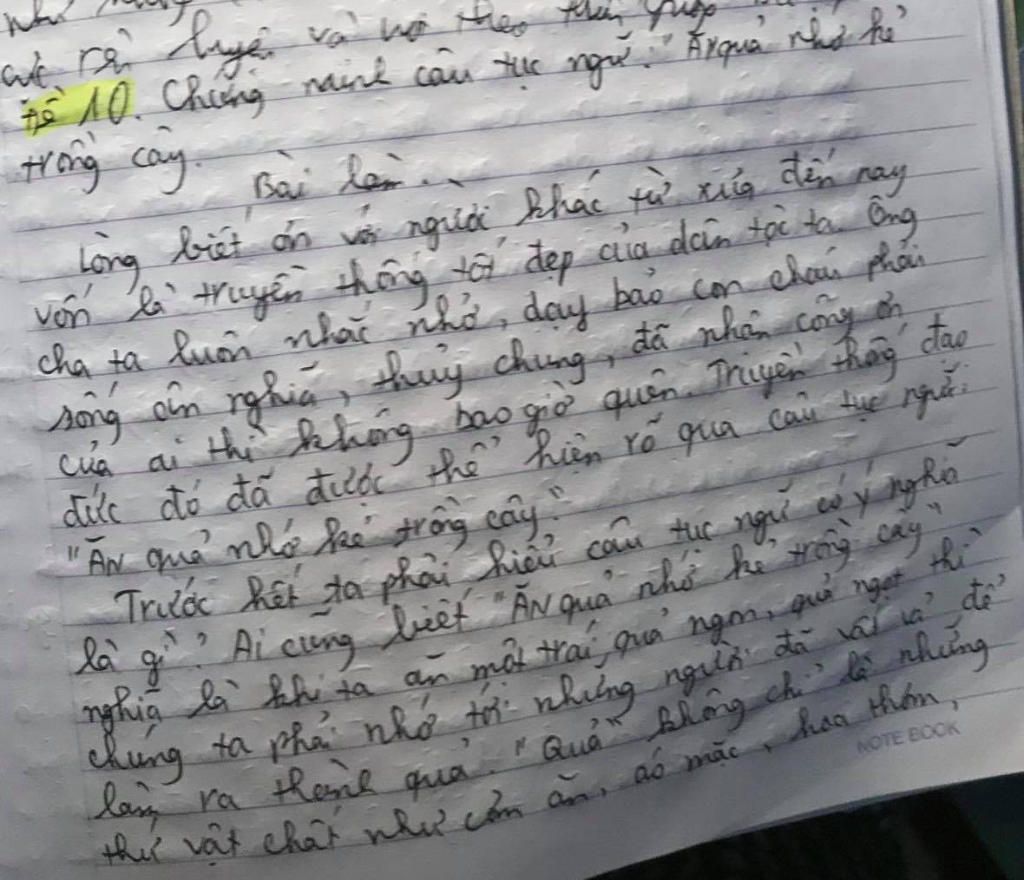 như
rèn luyện và noi theo
Đề 10. Chứng minh câu tục ngữ: "Ăn quả nhớ kẻ
trồng cây.
Bài làm.
Lòng biết ơn với người khác từ xưa đến nay
vốn là truyền thống tốt đẹp của dân tộc ta. Ông
cha ta luôn nhắc nhở, dạy bảo con cháu phải
sống ân nghĩa, thuỷ chung, đã nhận công ơn
của ai thì không bao giờ quên. Truyền thống đạo
đức đó đã được thể hiện rõ qua câu tục ngữ:
"Ăn quả nhớ kẻ trồng cây."
Trước hết ta phải hiểu câu tục ngữ có ý nghĩa
là gì? Ai cũng biết "Ăn quả nhớ kẻ trồng cây"
nghĩa là khi ta ăn một trái, quả ngon, quả ngọt thì
chúng ta phải nhớ tới những người đã vất vả để
làm ra thành quả. "Quả" không chỉ là những
thứ vật chất như cơm ăn, áo mặc, hoa thơm,
NOTE BOOK